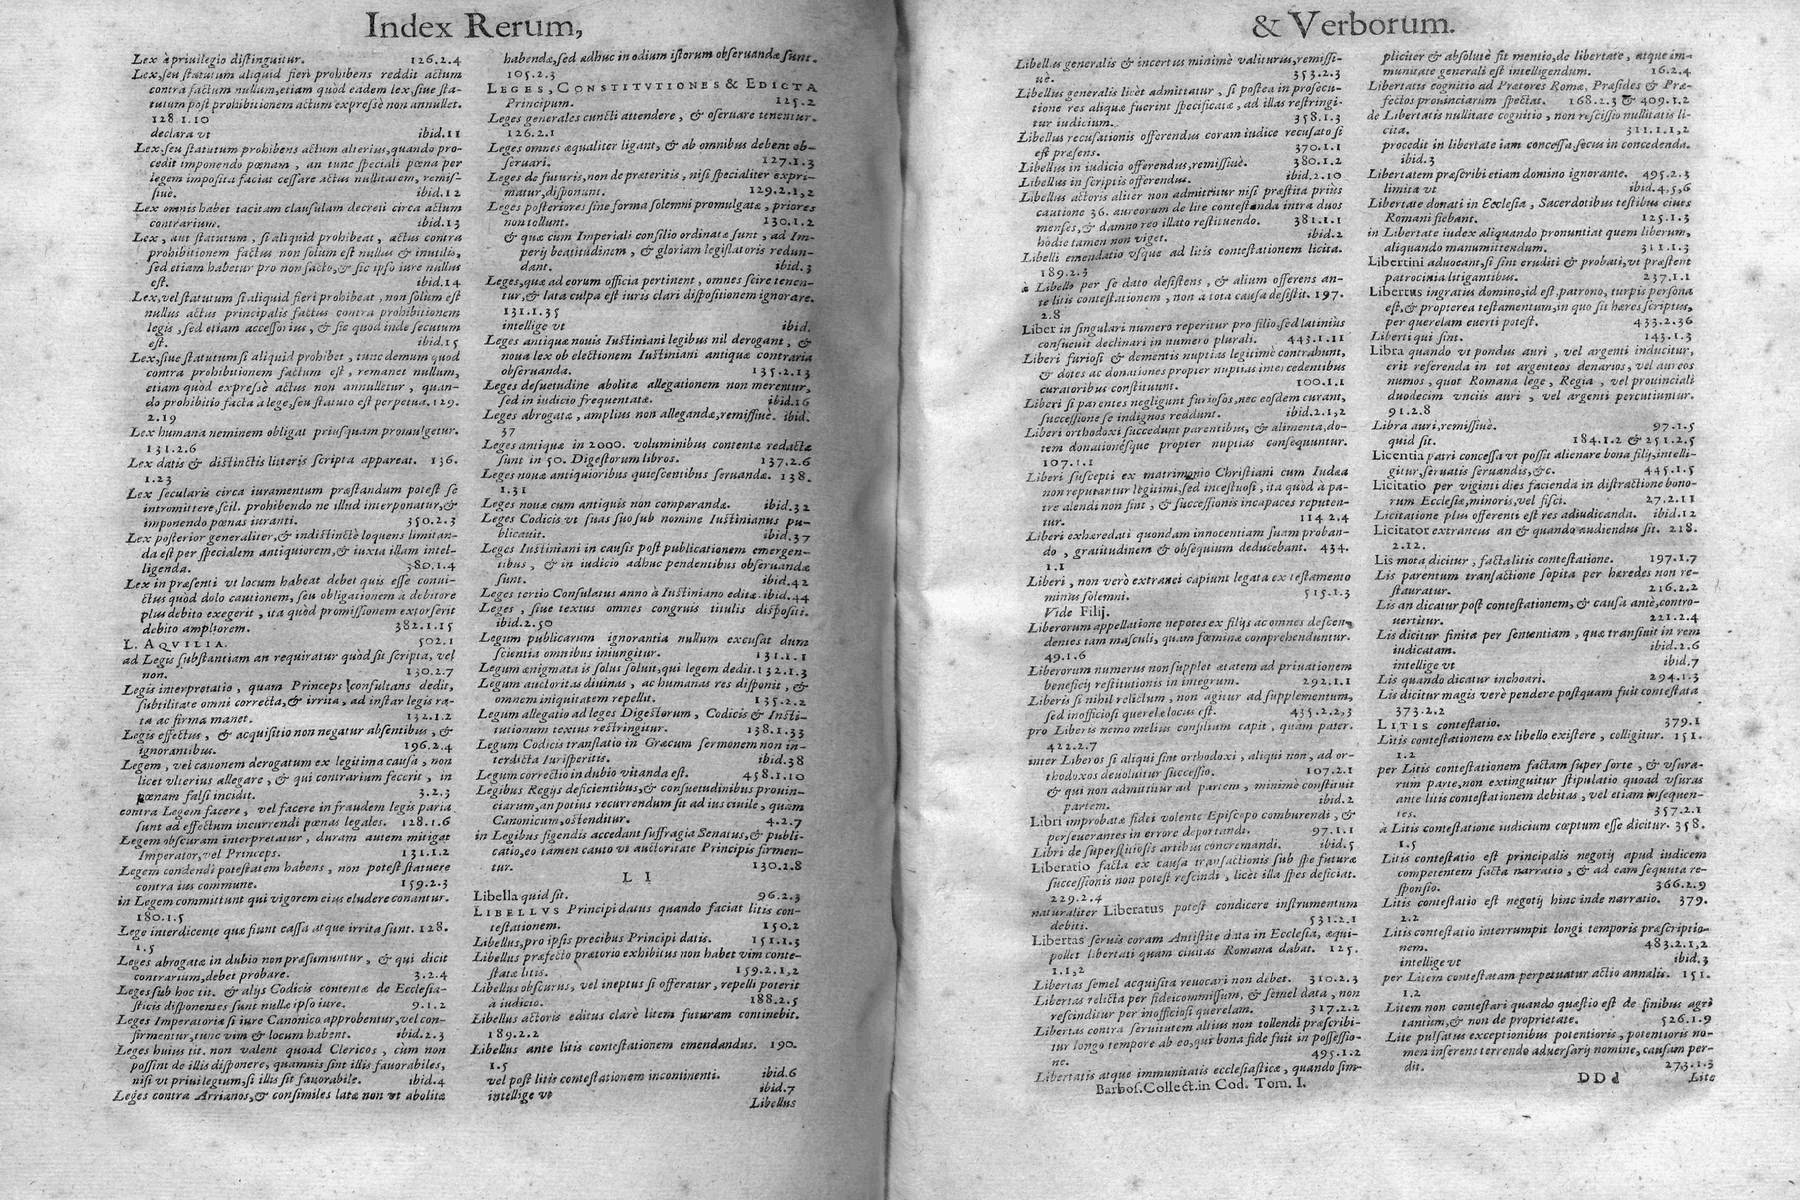 Index Rerum,
Lex à priuilegio distinguitur. 126.2.4
Lex, seu statutum aliquid fieri prohibens reddit actum
contra factum nullum, etiam quod eadem lex, siue sta-
tutum post prohibitionem actum expressè non annullet.
128.1.10
declara vt ibid.11
Lex, seu statutum prohibens actum alterius, quando pro-
cedit imponendo pœnam, an tunc speciali pœna per
legem imposita faciat cessare actus nullitatem, remis-
siuè. ibid.12
Lex omnis habet tacitam clausulam decreti circa actum
contrarium. ibid.13
Lex, aut statutum, si aliquid prohibeat, actus contra
prohibitionem factus non solum est nullus & inutilis,
sed etiam habetur pro non facto, & sic ipso iure nullus
est. ibid.14
Lex, vel statutum si aliquid fieri prohibeat, non solum est
nullus actus principalis factus contra prohibitionem
legis, sed etiam accessorius, & sic quod inde secutum
est. ibid.15
Lex, siue statutum si aliquid prohibet, tunc demum quod
contra prohibitionem factum est, remanet nullum,
etiam quòd expressè actus non annulletur, quan-
do prohibitio facta à lege, seu statuto est perpetua. 129.
2.19
Lex humana neminem obligat priusquam promulgetur.
131.2.6
Lex datis & distinctis litteris scripta appareat. 136.
1.23
Lex secularis circa iuramentum præstandum potest se
intromittere, scil. prohibendo ne illud interponatur, &
imponendo pœnas iuranti. 350.2.3
Lex posterior generaliter, & indistinctè loquens limitan-
da est per specialem antiquiorem, & iuxta illam intel-
ligenda. 380.1.4
Lex in præsenti vt locum habeat debet quis esse conui-
ctus quòd dolo cautionem, seu obligationem à debitore
plus debito exegerit, ita quòd promissionem extorserit
debito ampliorem. 382.1.15
L. AQVILIA. 502.1
ad Legis substantiam an requiratur quòd sit scripta, vel
non. 130.2.7
Legis interpretatio, quam Princeps consultans dedit,
subtilitate omni correcta, & irrita, ad instar legis ra-
ta ac firma manet. 132.1.2
Legis effectus, & acquisitio non negatur absentibus, &
ignorantibus. 196.2.4
Legem, vel canonem derogatum ex legitima causa, non
licet vlterius allegare, & qui contrarium fecerit, in
pœnam falsi incidit. 3.2.3
contra Legem facere, vel facere in fraudem legis paria
sunt ad effectum incurrendi pœnas legales. 128.1.6
Legem obscuram interpretatur, duram autem mitigat
Imperator, vel Princeps. 131.1.2
Legem condendi potestatem habens, non potest statuere
contra ius commune. 159.2.3
in Legem committunt qui vigorem eius eludere conantur.
180.1.5
Lege interdicente quæ fiunt cassa atque irrita sunt. 128.
1.5
Leges abrogatæ in dubio non præsumuntur, & qui dicit
contrarium, debet probare. 3.2.4
Leges sub hoc tit. & alijs Codicis contentæ de Ecclesia-
sticis disponentes sunt nullæ ipso iure. 9.1.2
Leges Imperatoriæ si iure Canonico approbentur, vel con-
firmentur, tunc vim & locum habent. ibid.2.3
Leges huius tit. non valent quoad Clericos, cum non
possint de illis disponere, quamuis sint illis fauorabiles,
nisi vt priuilegium, si illis sit fauorabile. ibid.4
Leges contra Arrianos, & consimiles latæ non vt abolitæ
habendæ, sed adhuc in odium istorum obseruandæ sunt.
105.2.3
LEGES, CONSTITVTIONES & EDICTA
Principum. 125.2
Leges generales cuncti attendere, & oseruare tenentur.
126.2.1
Leges omnes æqualiter ligant, & ab omnibus debent ob-
seruari. 127.1.3
Leges de futuris, non de præteritis, nisi specialiter expri-
matur, disponant. 129.2.1,2
Leges posteriores sine forma solemni promulgatæ, priores
non tollunt. 130.1.2
& quæ cum Imperiali consilio ordinatæ sunt, ad Im-
perij beatitudinem, & gloriam legislatoris redun-
dant. ibid.3
Leges, quæ ad eorum officia pertinent, omnes scire tenen-
tur, & lata culpa est iuris clari dispositionem ignorare.
131.1.35
intellige vt ibid.
Leges antiquæ nouis Iustiniani legibus nil derogant, &
noua lex ob electionem Iustiniani antiquæ contraria
obseruanda. 135.2.13
Leges desuetudine abolitæ allegationem non merentur,
sed in iudicio frequentatæ. ibid.16
Leges abrogatæ, amplius non allegandæ, remissiuè. ibid.
37
Leges antiquæ in 2000. voluminibus contentæ redactæ
sunt in 50. Digestorum libros. 137.2.6
Leges nouæ antiquioribus quiescentibus seruandæ. 138.
1.31
Leges nouæ cum antiquis non comparandæ. ibid.32
Leges Codicis vt suas suo sub nomine Iustinianus pu-
blicauit. ibid.37
Leges Iustiniani in causis post publicationem emergen-
tibus, & in iudicio adhuc pendentibus obseruandæ
sunt. ibid.42
Leges tertio Consulatus anno à Iustiniano editæ. ibid.44
Leges, siue textus omnes congruis titulis dispositi.
ibid.2.50
Legum publicarum ignorantia nullum excusat dum
scientia omnibus iniungitur. 131.1.1
Legum ænigmata is solus soluit, qui legem dedit. 132.1.3
Legum auctoritas diuinas, ac humanas res disponit, &
omnem iniquitatem repellit. 135.2.2
Legum allegatio ad leges Digestorum, Codicis & Insti-
tutionum textus restringitur. 138.1.33
Legum Codicis translatio in Græcum sermonem non in-
terdicta Iurisperitis. ibid.38
Legum correctio in dubio vitanda est. 458.1.10
Legibus Regijs deficientibus, & consuetudinibus prouin-
ciarum, an potius recurrendum sit ad ius ciuile, quam
Canonicum, ostenditur. 4.2.7
in Legibus figendis accedant suffragia Senatus, & publi-
catio, eo tamen cauto vt auctoritate Principis firmen-
tur. 130.2.8
L I
Libella quid sit. 96.2.3
LIBELLVS Principi datus quando faciat litis con-
testationem. 150.2
Libellus, pro ipsis precibus Principi datis. 151.1.3
Libellus præfecto prætorio exhibitus non habet vim conte-
statæ litis. 159.2.1,2
Libellus obscurus, vel ineptus si offeratur, repelli poterit
à iudicio. 188.2.5
Libellus actoris editus clarè litem futuram continebit.
189.2.2
Libellus ante litis contestationem emendandus. 190.
1.5
vel post litis contestationem incontinenti. ibid.6
intellige vt ibid.7
Libellus
& Verborum.
Libellus generalis & incertus minimè valiturus, remissi-
uè. 353.2.3
Libellus generalis licèt admittatur, si postea in prosecu-
tione res aliquæ fuerint specificatæ, ad illas restringi-
tur iudicium. 358.1.3
Libellus recusationis offerendus coram iudice recusato si
est præsens. 370.1.1
Libellus in iudicio offerendus, remissiuè. 380.1.2
Libellus in scriptis offerendus. ibid.2.10
Libellus actoris aliter non admittitur nisi præstita prius
cautione 36. aureorum de lite contestanda intra duos
menses, & damno reo illato restituendo. 381.1.1
hodie tamen non viget. ibid.2
Libelli emendatio vsque ad litis contestationem licita.
189.2.3
à Libello per se dato desistens, & alium offerens an-
te litis contestationem, non à tota causa desistit. 197.
2.8
Liber in singulari numero reperitur pro filio, sed latinius
consueuit declinari in numero plurali. 443.1.11
Liberi furiosi & dementis nuptias legitimè contrahunt,
& dotes ac donationes propter nuptias intercedentibus
curatoribus constituunt. 100.1.1
Liberi si parentes negligunt furiosos, nec eosdem curant,
successione se indignos reddunt. ibid.2.1,2
Liberi orthodoxi succedunt parentibus, & alimenta, do-
tem donationésque propter nuptias consequuntur.
107.1.1
Liberi suscepti ex matrimonio Christiani cum Iudæa
non reputantur legitimi, sed incestuosi, ita quòd à pa-
tre alendi non sint, & successionis incapaces reputen-
tur. 114 2.4
Liberi exhæredati quondam innocentiam suam proban-
do, gratitudinem & obsequium deducebant. 434.
1.1
Liberi, non verò extranei capiunt legata ex testamento
minùs solemni. 515.1.3
Vide Filij.
Liberorum appellatione nepotes ex filijs ac omnes descen-
dentes tam masculi, quam fœminæ comprehenduntur.
49.1.6
Liberorum numerus non supplet ætatem ad priuationem
beneficij restitutionis in integrum. 292.1.1
Liberis si nihil relictum, non agitur ad supplementum,
sed inofficiosi querelæ locus est. 435.2.2,3
pro Liberis nemo melius consilium capit, quam pater.
422.2.7
inter Liberos si aliqui sint orthodoxi, aliqui non, ad or-
thodoxos deuoluitur successio. 107.2.1
& qui non admittitur ad partem, minimè constituit
partem. ibid.2
Libri improbatæ fidei volente Episcopo comburendi, &
perseuerantes in errore deportandi. 97.1.1
Libri de superstitiosis artibus concremandi. ibid.5
Liberatio facta ex causa transactionis sub spe futuræ
successionis non potest rescindi, licèt illa spes deficiat.
229.2.4
naturaliter Liberatus potest condicere instrumentum
debiti. 531.2.1
Libertas seruis coram Antistite data in Ecclesia, æqui-
pollet libertati quam ciuitas Romana dabat. 125.
1.1,2
Libertas semel acquisita reuocari non debet. 310.2.3
Libertas relicta per fideicommissum, & semel data, non
rescinditur per inofficiosi querelam. 317.2.2
Libertas contra seruitutem altius non tollendi præscribi-
tur longo tempore ab eo, qui bona fide fuit in possessio-
ne. 495.1.2
Libertatis atque immunitatis ecclesiasticæ, quando sim-
Barbos. Collect. in Cod. Tom. I.
pliciter & absolutè sit mentio, de libertate, atque im-
munitate generali est intelligendum. 16.2.4
Libertatis cognitio ad Prætores Romæ, Præsides & Præ-
fectos prouinciarum spectat. 168.2.3 & 409.1.2
de Libertatis nullitate cognitio, non rescissio nullitatis li-
cita. 311.1.1,2
procedit in libertate iam concessa, secus in concedenda.
ibid.3
Libertatem præscribi etiam domino ignorante. 495.2.3
limita vt ibid.4,5,6
Libertate donati in Ecclesia, Sacerdotibus testibus ciues
Romani fiebant. 125.1.3
in Libertate iudex aliquando pronuntiat quem liberum,
aliquando manumittendum. 311.1.3
Libertini aduocent, si sint eruditi & probati, vt præstent
patrocinia litigantibus. 237.1.1
Libertus ingratus domino, id est, patrono, turpis persona
est, & propterea testamentum, in quo sit hæres scriptus,
per querelam euerti potest. 433.2.36
Liberti qui sint. 143.1.3
Libra quando vt pondus auri, vel argenti inducitur,
erit referenda in tot argenteos denarios, vel aureos
numos, quot Romana lege, Regia, vel prouinciali
duodecim vnciis auri, vel argenti percutiuntur.
91.2.8
Libra auri, remissiuè. 97.1.5
quid sit. 184.1.2 & 251.2.5
Licentia patri concessa vt possit alienare bona filij, intelli-
gitur, seruatis seruandis, &c. 445.1.5
Licitatio per viginti dies facienda in distractione bono-
rum Ecclesiæ, minoris, vel fisci. 27.2.11
Licitatione plus offerenti est res adiudicanda. ibid.12
Licitator extraneus an & quando audiendus sit. 218.
2.12.
Lis mota dicitur, facta litis contestatione. 197.1.7
Lis parentum transactione sopita per hæredes non re-
stauratur. 216.2.2
Lis an dicatur post contestationem, & causa antè, contro-
uertitur. 221.2.4
Lis dicitur finita per sententiam, quæ transiuit in rem
iudicatam. ibid.2.6
intellige vt ibid.7
Lis quando dicatur inchoari. 294.1.3
Lis dicitur magis verè pendere postquam fuit contestata
373.2.2
LITIS contestatio. 379.1
Litis contestationem ex libello existere, colligitur. 151.
1.2
per Litis contestationem factam super sorte, & vsura-
rum parte, non extinguitur stipulatio quoad vsuras
ante litis contestationem debitas, vel etiam insequen-
tes. 357.2.1
à Litis contestatione iudicium cœptum esse dicitur. 358.
1.5
Litis contestatio est principalis negotij apud iudicem
competentem facta narratio, & ad eam sequuta re-
sponsio. 366.2.9
Litis contestatio est negotij hinc inde narratio. 379.
2.2
Litis contestatio interrumpit longi temporis præscriptio-
nem. 483.2.1,2
intellige vt ibid.3
per Litem contestatam perpetuatur actio annalis. 151.
1.2
Litem non contestari quando quæstio est de finibus agri
tantùm, & non de proprietate. 526.1.9
Lite pulsatus exceptionibus potentioris, potentioris no-
men inserens terrendo aduersarij nomine, causam per-
dit. 273.1.3
DDd Lite